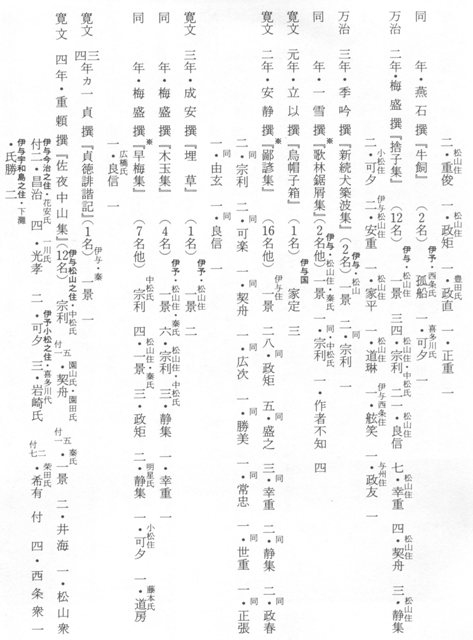 松山住・重俊 一 松山住・政矩 一 豊田氏・政直 一・正重 一
同 年・燕石 撰『牛飼』(2名) 伊予・西条氏 孤船 一 喜多川氏 可夕 一
万治 二年・梅盛 撰『捨子集』(12名) 伊予・松山住 一景 三四 松山住・中松氏 宗利 二一 松山住・良信 七 松山住・幸重 四 松山住・契舟 三 松山住・静集
二 小松住・可夕 二 伊与松山住・安重 一 松山住・家平 一 松山住・道琳 一 伊与西条住・舷笑 一 与州住・政友 一
万治 三年・季吟 撰『新続犬築波集』(2名) 伊与・松山 一景 二 同・宗利 一
同 年・一雪 撰『歌林鋸屑集』※(2名他) 伊与・松山住・秦氏 一景 一 同・中松氏 宗利 一・作者不知 四
寛文 元年・立以 撰『烏帽子箱』(1名) 伊与国 家定 三
寛文 二年・安静 撰『鄙諺集』※(16名他) 伊与住 一景 二八 同・政矩 五 同・盛之 三 同・幸重 二 同・静集 二 同・政春
二 同・宗利 二 同・可楽 一 同・契舟 一 同・広次 一 同・勝美 一 同・常忠 一 同・世重 一 同・正張
一 同・由玄 一 同・良信 一
寛文 三年・成安 撰『埋草』(1名) 伊予・松山住 一景 二
同 年・梅盛 撰『木玉集』(4名) 伊予・松山住・秦氏 一景 六 松山住・中松氏 宗利 三 松山住・静集 一 松山住・幸重 一
同 年・梅盛 撰『早梅集』※(7名他) 中松氏 宗利 四 松山住・秦氏 一景 三 松山住・政矩 二 明星氏・静集 一 小松住・可夕 一 藤本氏・道房
一 広橋氏・良信 一
寛文 四三年カ 一貞 撰『貞徳誹諧記』(1名) 伊与・秦 一景 一
寛文 四年・重頼 撰『佐夜中山集』(12名) 伊与松山之住・中松氏 宗利 付一五 園山氏・園田氏 契舟 付一五 秦氏 一景 二・井海 一・松山衆
付二 伊与今治之住・花安氏 昌治 四 一川氏 光孝 二 伊予小松之住・喜多川代 可夕 三・岩崎氏 付七二 柴田氏 希有 付 四・西条衆 一
伊与宇和島之住・下灘 氏勝 二